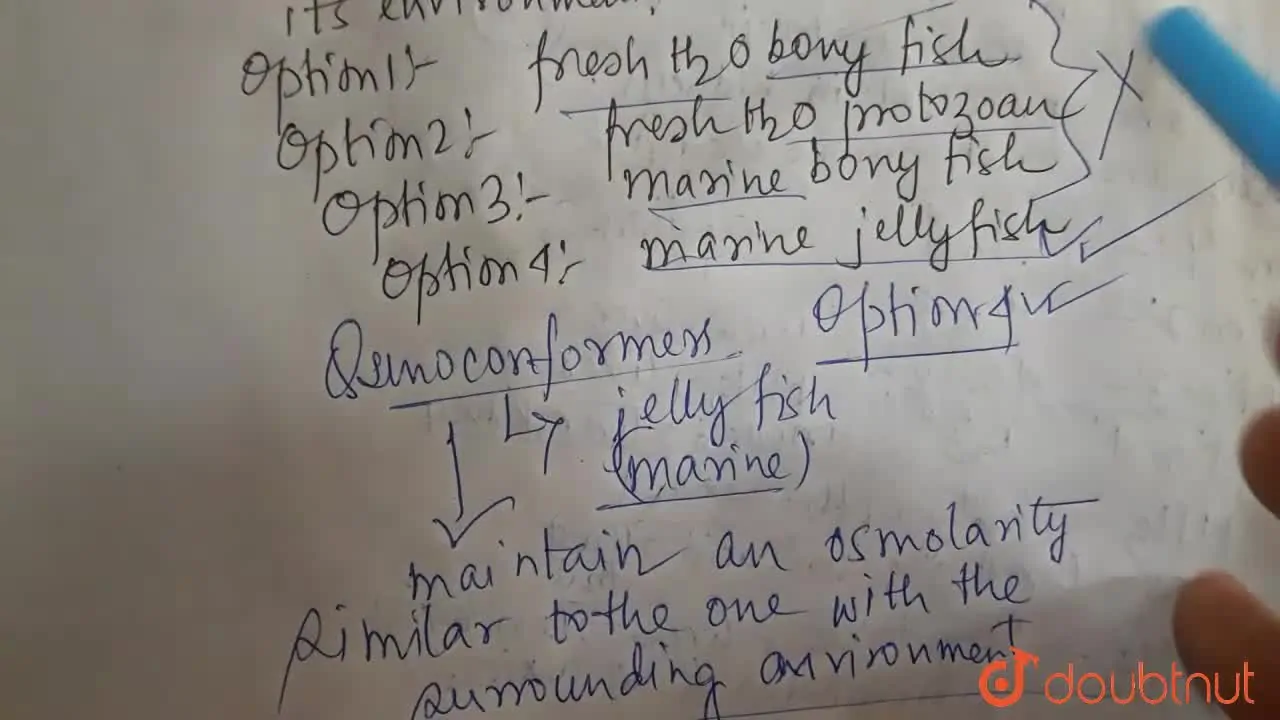 its environment.
Option1:- fresh H2O bony fish
Option2:- fresh H2O protozoan
Option3:- marine bony fish
Option4:- marine jellyfish
Osmoconformers Option4
jelly fish
(marine)
maintain an osmolarity
similar to the one with the
surrounding environment
doubtnut